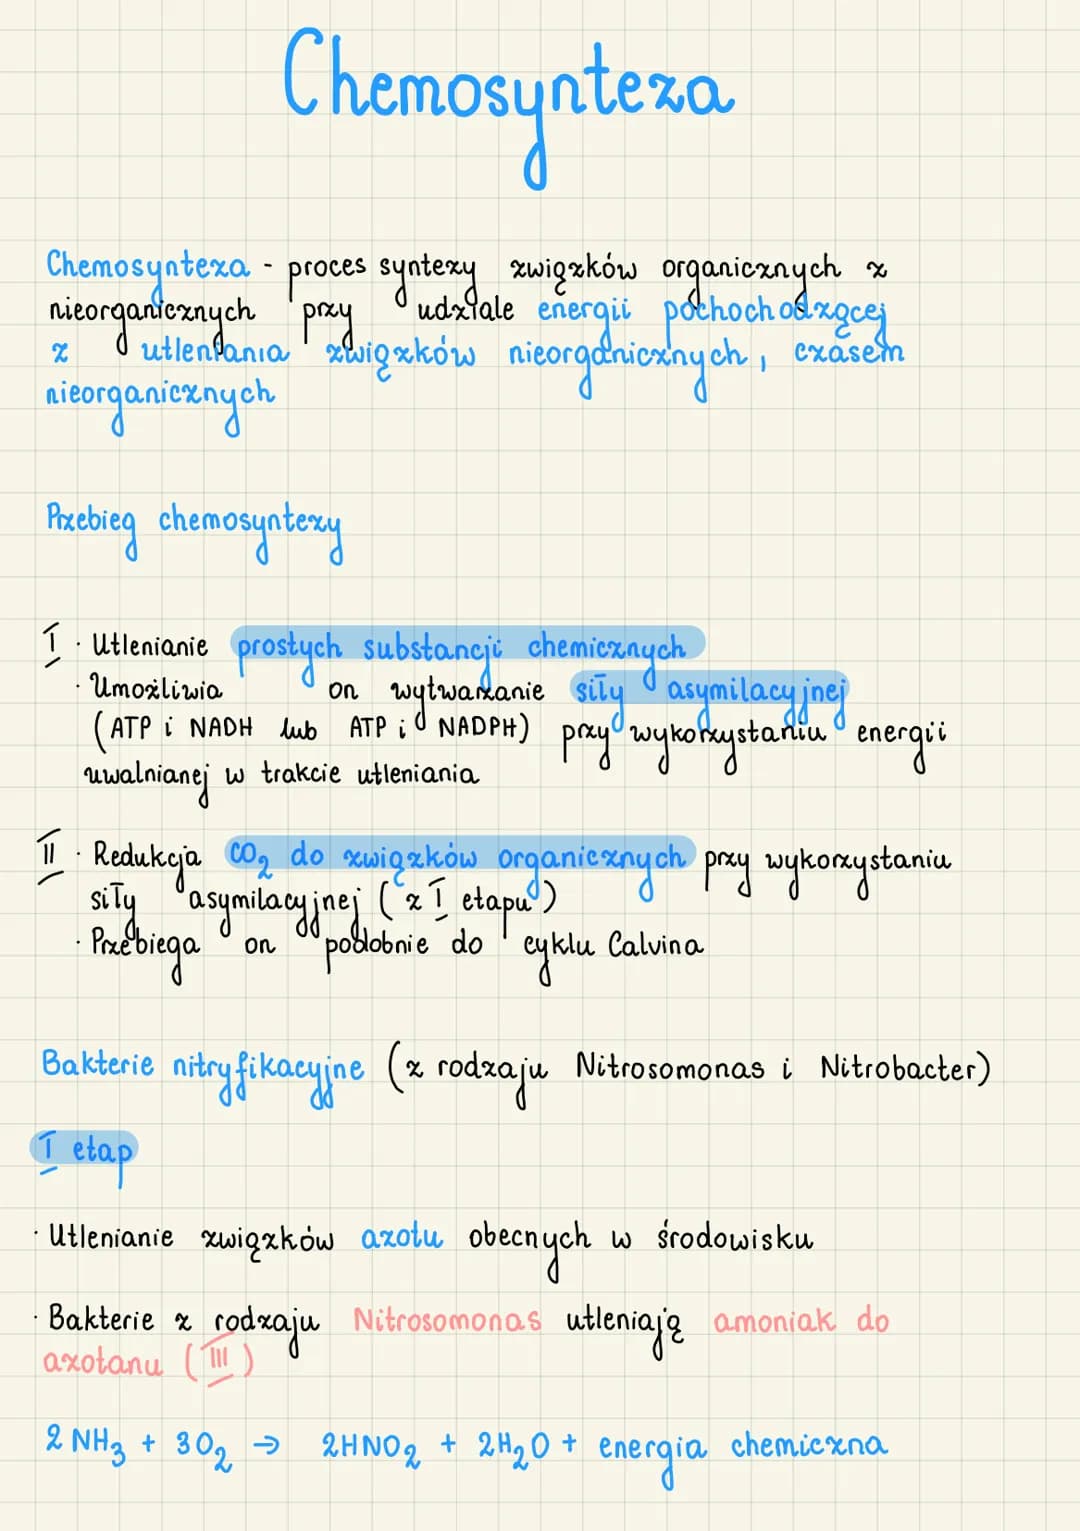 Chemosynteza
Chemosynteza - proces syntezy związków organicznych z
nieorganicznych przy udziale energii pochochodzącej
z utleniania związków nieorganicznych, czasem
nieorganicznych
Przebieg chemosyntezy
I · Utlenianie prostych substancji chemicznych
· Umożliwia on wytwarzanie siły asymilacyjnej
(ATP i NADH lub ATP i NADPH) przy wykorzystaniu energii
uwalnianej w trakcie utleniania
II · Redukcja CO₂ do związków organicznych przy wykorzystaniu
siły asymilacyjnej (z I etapu)
· Przebiega on podobnie do cyklu Calvina
Bakterie nitryfikacyjne (z rodzaju Nitrosomonas i Nitrobacter)
I etap
· Utlenianie związków azotu obecnych w środowisku
· Bakterie z rodzaju Nitrosomonas utleniają amoniak do
azotanu (III)
2 NH₃ + 3O₂ → 2HNO₂ + 2H₂O + energia chemiczna